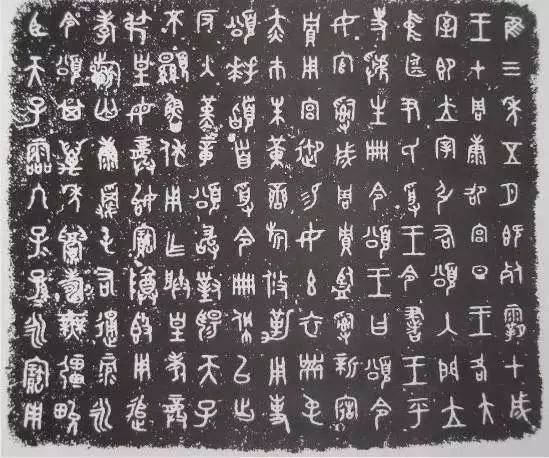 隹三年五月既死霸甲戌
王才周康卲宮旦王各大
室即立宰引右頌入門立
中廷尹氏受王令書王乎
史虢生冊令頌王曰頌令
女官𤔲成周貯監𤔲新造
貯用宮御易女玄衣黹屯
赤巿朱黃鑾旂攸勒用事
頌拜稽首受令冊佩以出
反入堇章頌敢對揚天子
不顯魯休用乍朕皇考龏
弔皇母龏始寶尊鼎用追
孝祈匃康𠭯屯右通彔永
令頌其萬年眉壽無疆畯
臣天子霝冬子孫永寶用